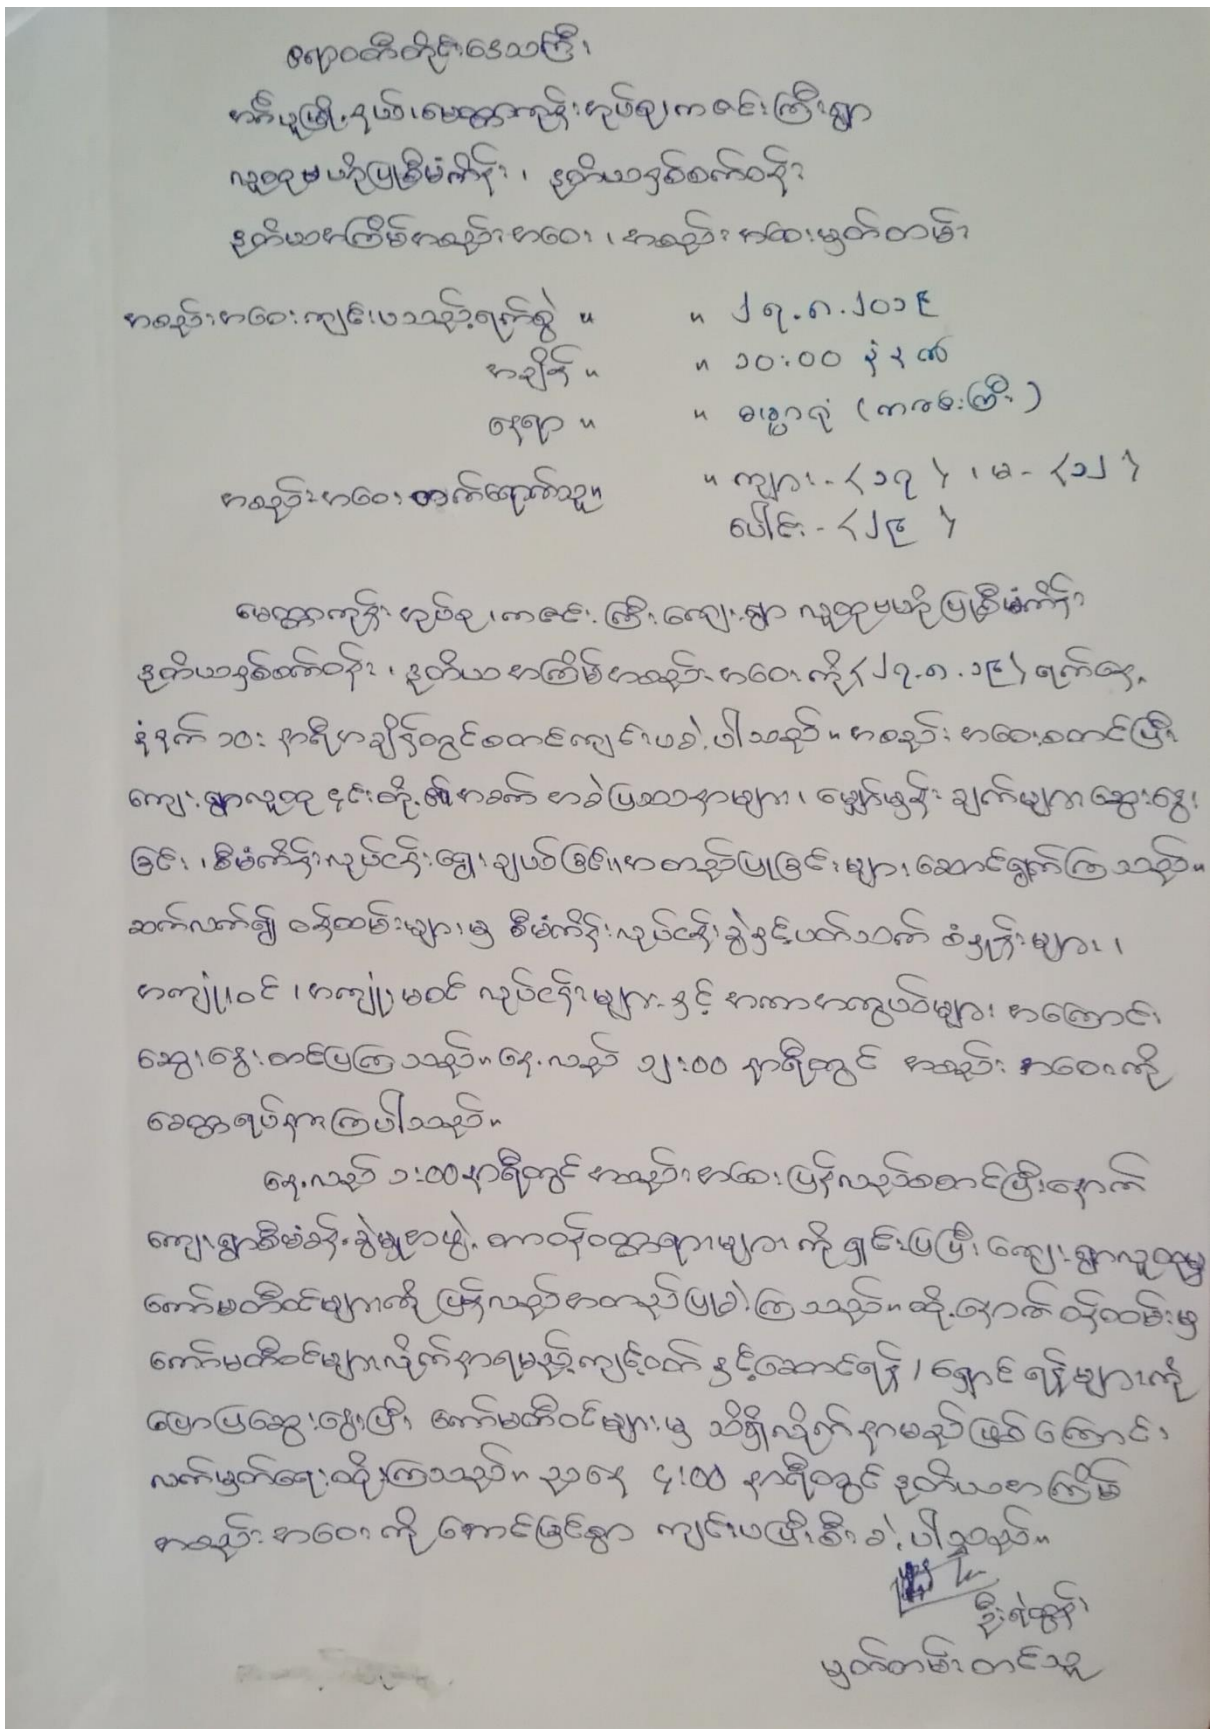 ဧရာဝတီတိုင်းဒေသကြီး
အိမ်မဲမြို့နယ်၊ မေတ္တာကုန်းအုပ်စု၊ ကဇင်းကြီးရွာ
လူထုဗဟိုပြုစီမံကိန်း၊ ဒုတိယနှစ်စက်ဝန်း
ဒုတိယအကြိမ်အစည်းအဝေး၊ အစည်းအဝေးမှတ်တမ်း
အစည်းအဝေးကျင်းပသည့်ရက်စွဲ ။ ။ ၂၇.၈.၂၀၁၉
အချိန် ။ ။ ၁၀:၀၀ နံနက်
နေရာ ။ ။ ဓမ္မာရုံ (ကဇင်းကြီး)
အစည်းအဝေးတက်ရောက်သူ။ ။ ကျား - {၁၇}၊ မ - {၁၂}
ပေါင်း - {၂၉}
မေတ္တာကုန်းအုပ်စု၊ ကဇင်းကြီးကျေးရွာ လူထုဗဟိုပြုစီမံကိန်း
ဒုတိယနှစ်စက်ဝန်း၊ ဒုတိယအကြိမ်အစည်းအဝေးကို {၂၇.၈.၁၉} ရက်နေ့
နံနက် ၁၀: နာရီအချိန်တွင်စတင်ကျင်းပခဲ့ပါသည်။ အစည်းအဝေးစတင်ပြီး
ကျေးရွာလူထု ၎င်းတို့၏အခက်အခဲပြဿနာများ၊ မျှော်မှန်းချက်များဆွေးနွေး
ခြင်း၊ စီမံကိန်းလုပ်ငန်းရွေးချယ်ခြင်း၊ အတည်ပြုခြင်းများဆောင်ရွက်ကြသည်။
ဆက်လက်၍ ဝန်ထမ်းများမှ စီမံကိန်းလုပ်ငန်းခွဲနှင့်ပတ်သက် စံနှုန်းများ၊
အကျုံးဝင်၊ အကျုံးမဝင် လုပ်ငန်းများနှင့် အကာအကွယ်များအကြောင်း
ဆွေးနွေးတင်ပြကြသည်။ နေ့လည် ၁၂:၀၀ နာရီတွင် အစည်းအဝေးကို
ခေတ္တရပ်နားကြပါသည်။
နေ့လည် ၁:၀၀ နာရီတွင် အစည်းအဝေးပြန်လည်စတင်ပြီးနောက်
ကျေးရွာစီမံခန့်ခွဲမှုအဖွဲ့ တာဝန်ဝတ္တရားများကို ရှင်းပြပြီး ကျေးရွာလူထုမှ
ကော်မတီဝင်များကို ပြန်လည်အတည်ပြုခဲ့ကြသည်။ ထို့နောက် ဝန်ထမ်းမှ
ကော်မတီဝင်များလိုက်နာရမည့်ကျင့်ဝတ်နှင့်ဆောင်ရန်/ရှောင်ရန်များကို
ပြောပြဆွေးနွေးပြီး ကော်မတီဝင်များမှ သိရှိလိုက်နာမည်ဖြစ်ကြောင်း
လက်မှတ်ရေးထိုးကြသည်။ ညနေ ၄:၀၀ နာရီတွင် ဒုတိယအကြိမ်
အစည်းအဝေးကို အောင်မြင်စွာ ကျင်းပပြီးစီးခဲ့ပါသည်။
ဦးရဲထွန်း
မှတ်တမ်းတင်သူ